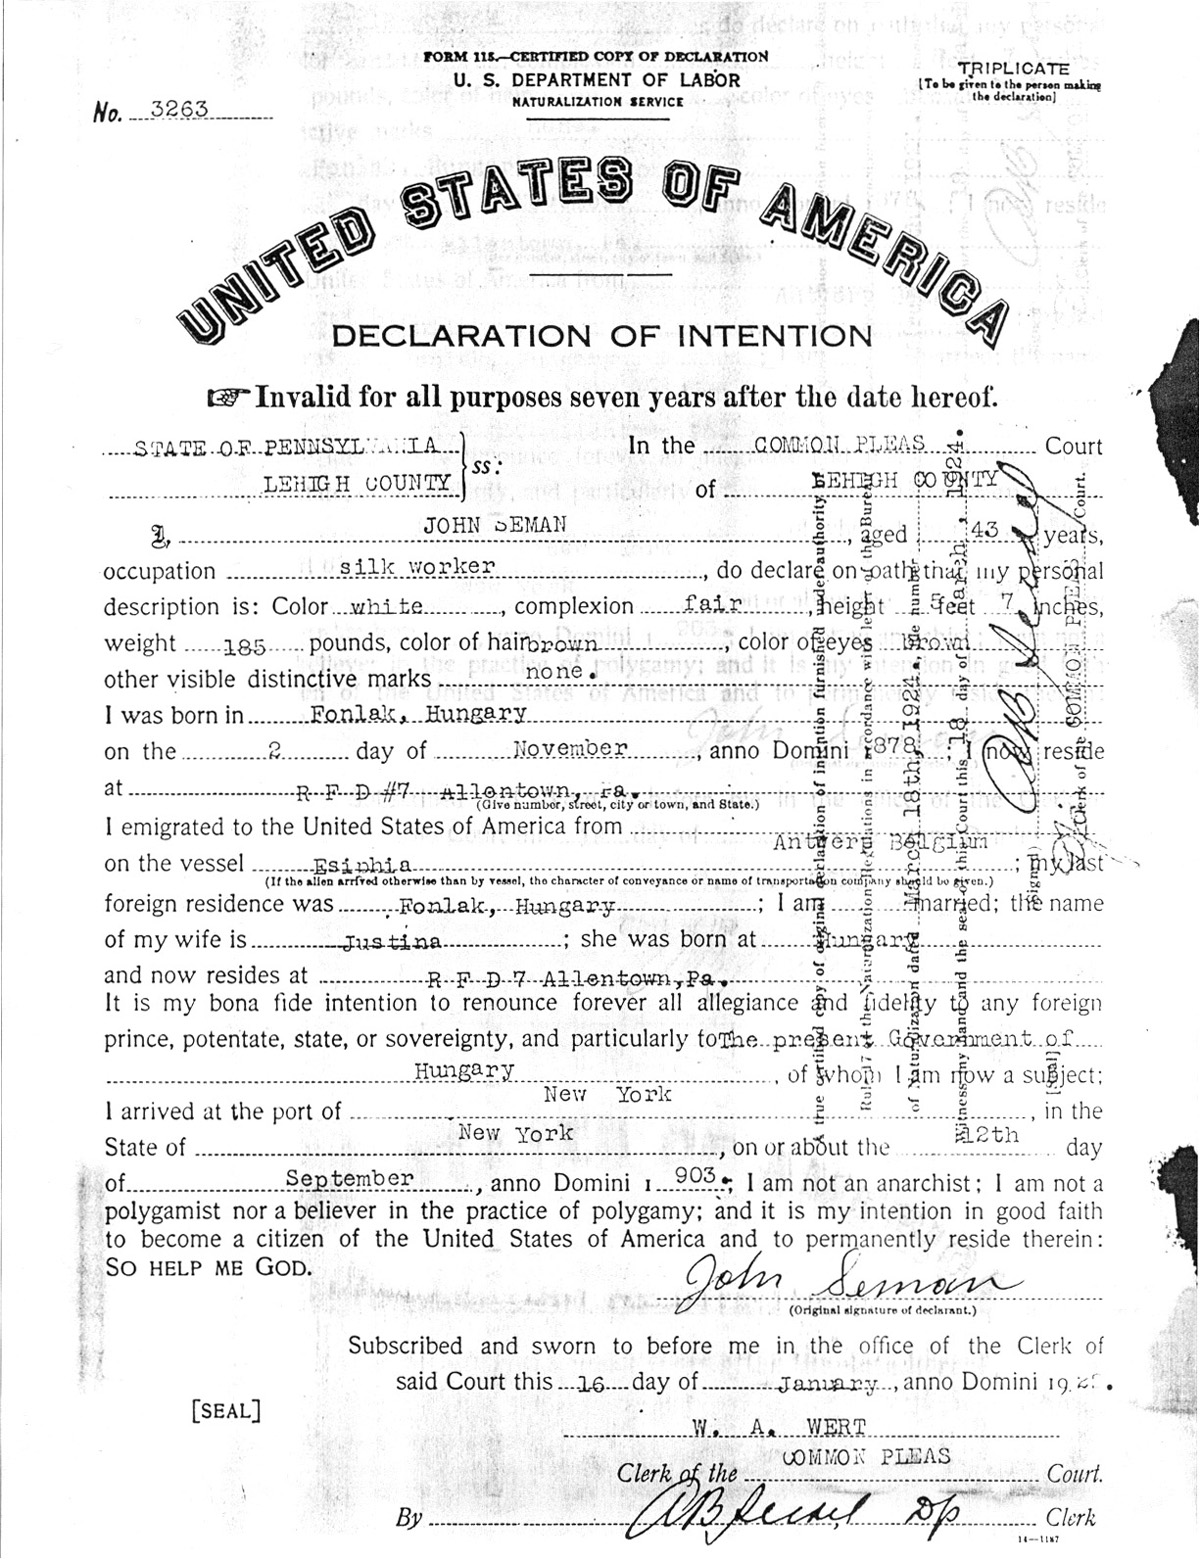 FORM 115.—CERTIFIED COPY OF DECLARATION
U. S. DEPARTMENT OF LABOR
NATURALIZATION SERVICE
TRIPLICATE
[To be given to the person making
the declaration]
No. 3263
UNITED STATES OF AMERICA
DECLARATION OF INTENTION
☞ Invalid for all purposes seven years after the date hereof.
STATE OF PENNSYLVANIA
LEHIGH COUNTY
ss:
In the COMMON PLEAS Court
of LEHIGH COUNTY
I, JOHN SEMAN, aged 43 years,
occupation silk worker, do declare on oath that my personal
description is: Color white, complexion fair, height 5 feet 7 inches,
weight 185 pounds, color of hair brown, color of eyes brown
other visible distinctive marks none.
I was born in Fonlak, Hungary
on the 2 day of November, anno Domini 1878; I now reside
at R F D #7 Allentown, Pa.
(Give number, street, city or town, and State.)
I emigrated to the United States of America from Antwerp Belgium
on the vessel Esiphia; my last
(If the alien arrived otherwise than by vessel, the character of conveyance or name of transportation company should be given.)
foreign residence was Fonlak, Hungary; I am married; the name
of my wife is Justina; she was born at Hungary
and now resides at R F D 7 Allentown, Pa.
It is my bona fide intention to renounce forever all allegiance and fidelity to any foreign
prince, potentate, state, or sovereignty, and particularly to The present Government of
Hungary, of whom I am now a subject;
I arrived at the port of New York, in the
State of New York, on or about the 12th day
of September, anno Domini 1903; I am not an anarchist; I am not a
polygamist nor a believer in the practice of polygamy; and it is my intention in good faith
to become a citizen of the United States of America and to permanently reside therein:
SO HELP ME GOD.
John Seman
(Original signature of declarant.)
Subscribed and sworn to before me in the office of the Clerk of
said Court this 16 day of January, anno Domini 19
[SEAL]
W. A. WERT
Clerk of the COMMON PLEAS Court.
By AB Seidel Dp Clerk
14—1187
A true certified copy of original declaration of intention furnished under authority of
Rule 17 of the Naturalization Regulations in accordance with letter of the Bureau
of Naturalization dated March 18th, 1924, number
Witness my hand and the seal of this Court this 18 day of March, 1924.
[Seal]
(Signed) AB Seidel
Clerk of the COMMON PLEAS Court.